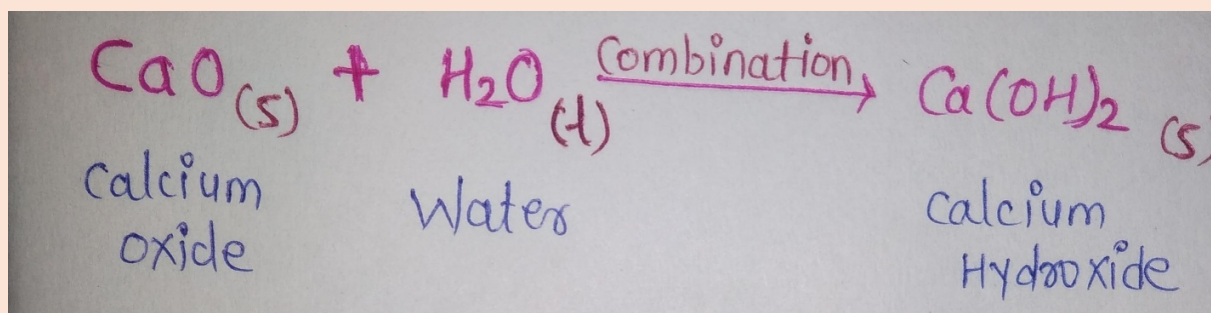 CaO(s) + H2O(l) Combination→ Ca(OH)2 (s)
Calcium oxide
Water
Calcium Hydroxide